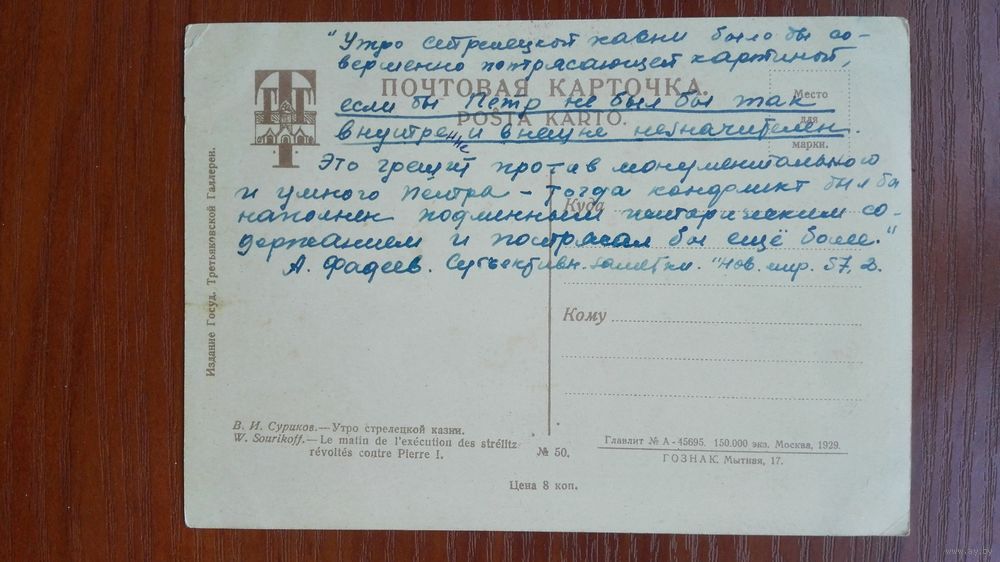 "Утро стрелецкой казни было бы со-
вершенно потрясающей картиной,
ПОЧТОВАЯ КАРТОЧКА.
если бы Петр не был бы так
POŜTA KARTO.
внутренне и внешне незначителен.
Место
для
марки.
Это грешит против монументального
и умного Петра – тогда конфликт был бы
Куда
наполнен подлинным историческим со-
держанием и потрясал бы ещё более."
А. Фадеев. Субъективн. заметки. "Нов. мир. 57, 2.
Кому
Издание Госуд. Третьяковской Галлереи.
В. И. Суриков.—Утро стрелецкой казни.
W. Sourikoff.—Le matin de l'exécution des strélitz
révoltés contre Pierre I.
№ 50.
Главлит № А-45695. 150.000 экз. Москва, 1929.
ГОЗНАК. Мытная, 17.
Цена 8 коп.
www.ay.by